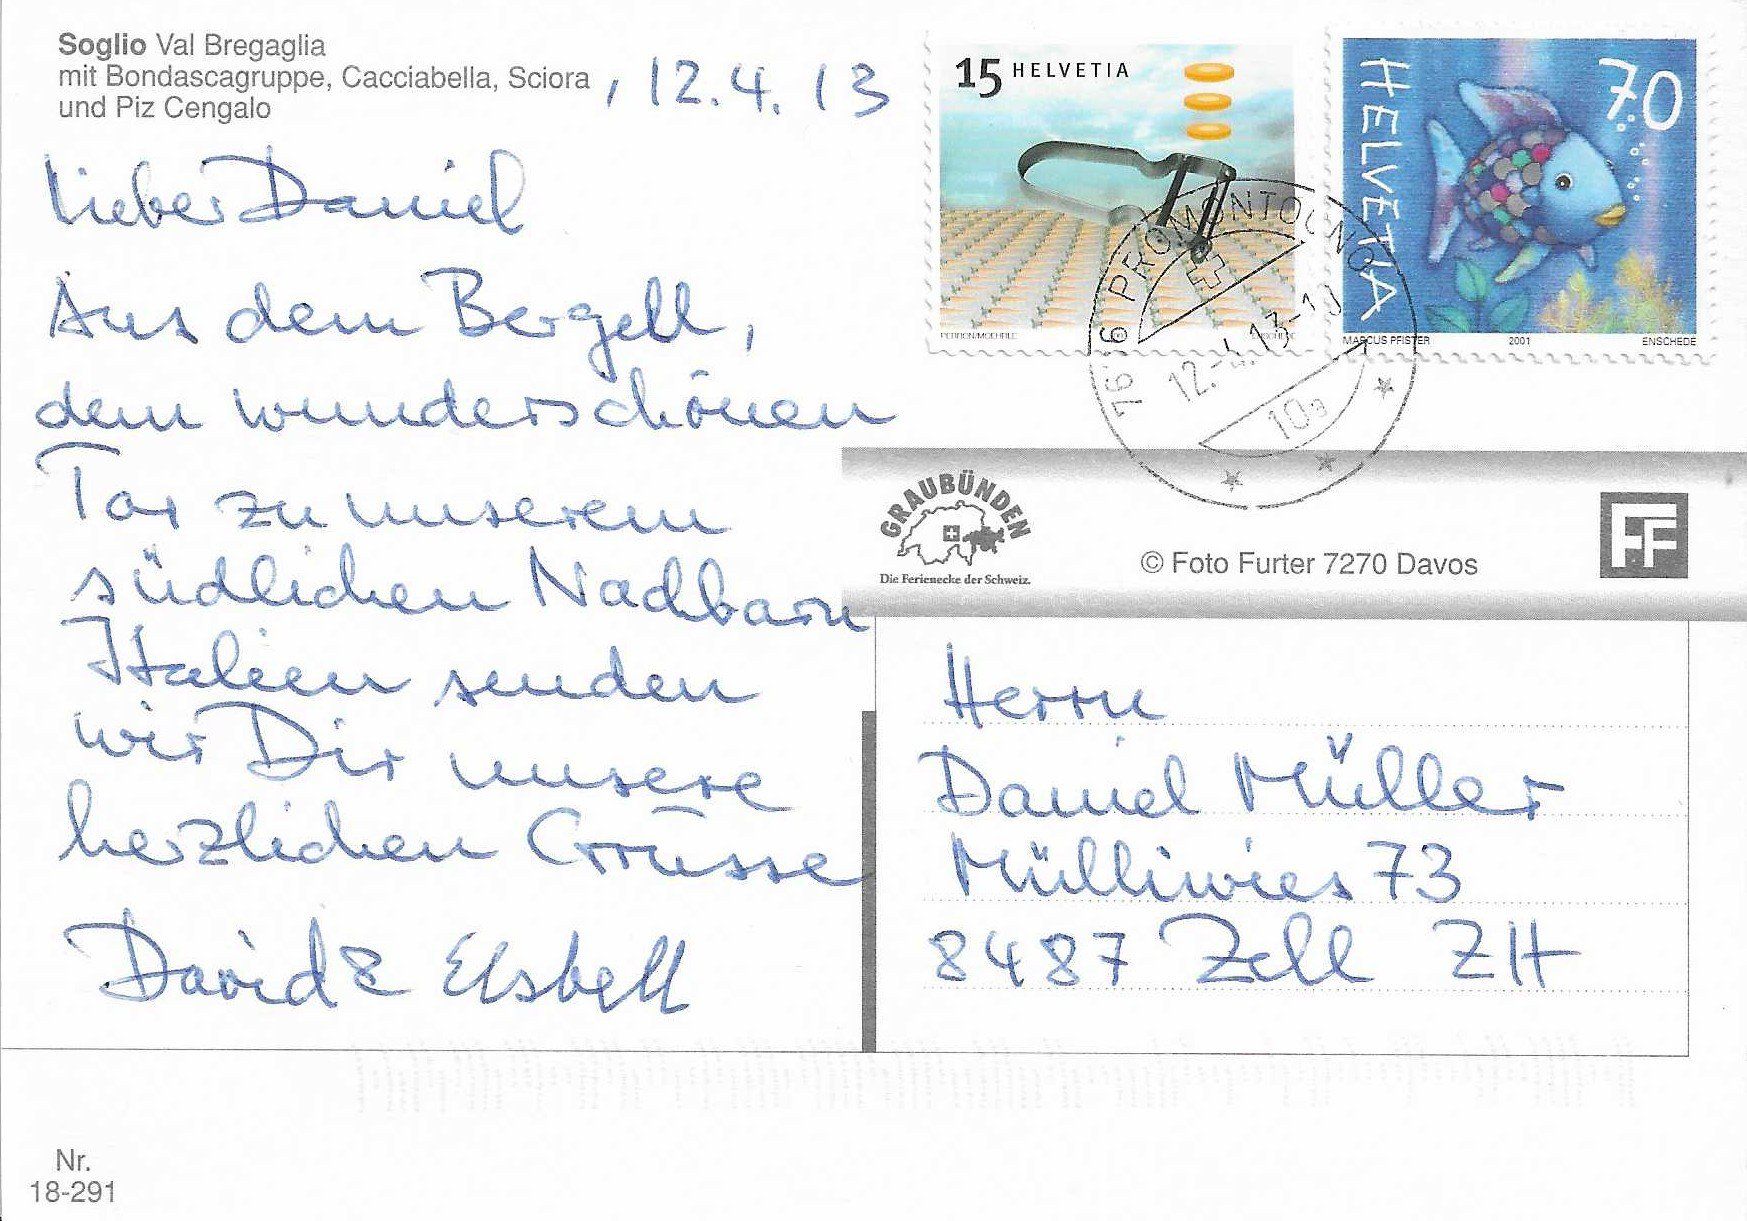 Soglio Val Bregaglia
mit Bondascagruppe, Cacciabella, Sciora
und Piz Cengalo
, 12.4.13
Lieber Daniel
Aus dem Bergell,
dem wunderschönen
Tor zu unserem
südlichen Nachbarn
Italien senden
wir Dir unsere
herzlichen Grüsse
David & Elsbeth
15 HELVETIA
PERRON/MOEHRLE 2003 ENSCHEDE
70
HELVETIA
MARCUS PFISTER 2001 ENSCHEDE
7606 PROMONTOGNO
12.-4.13-10
10g
GRAUBÜNDEN
Die Ferienecke der Schweiz.
© Foto Furter 7270 Davos
FF
Herrn
Daniel Müller
Mülliwies 73
8487 Zell ZH
Nr.
18-291